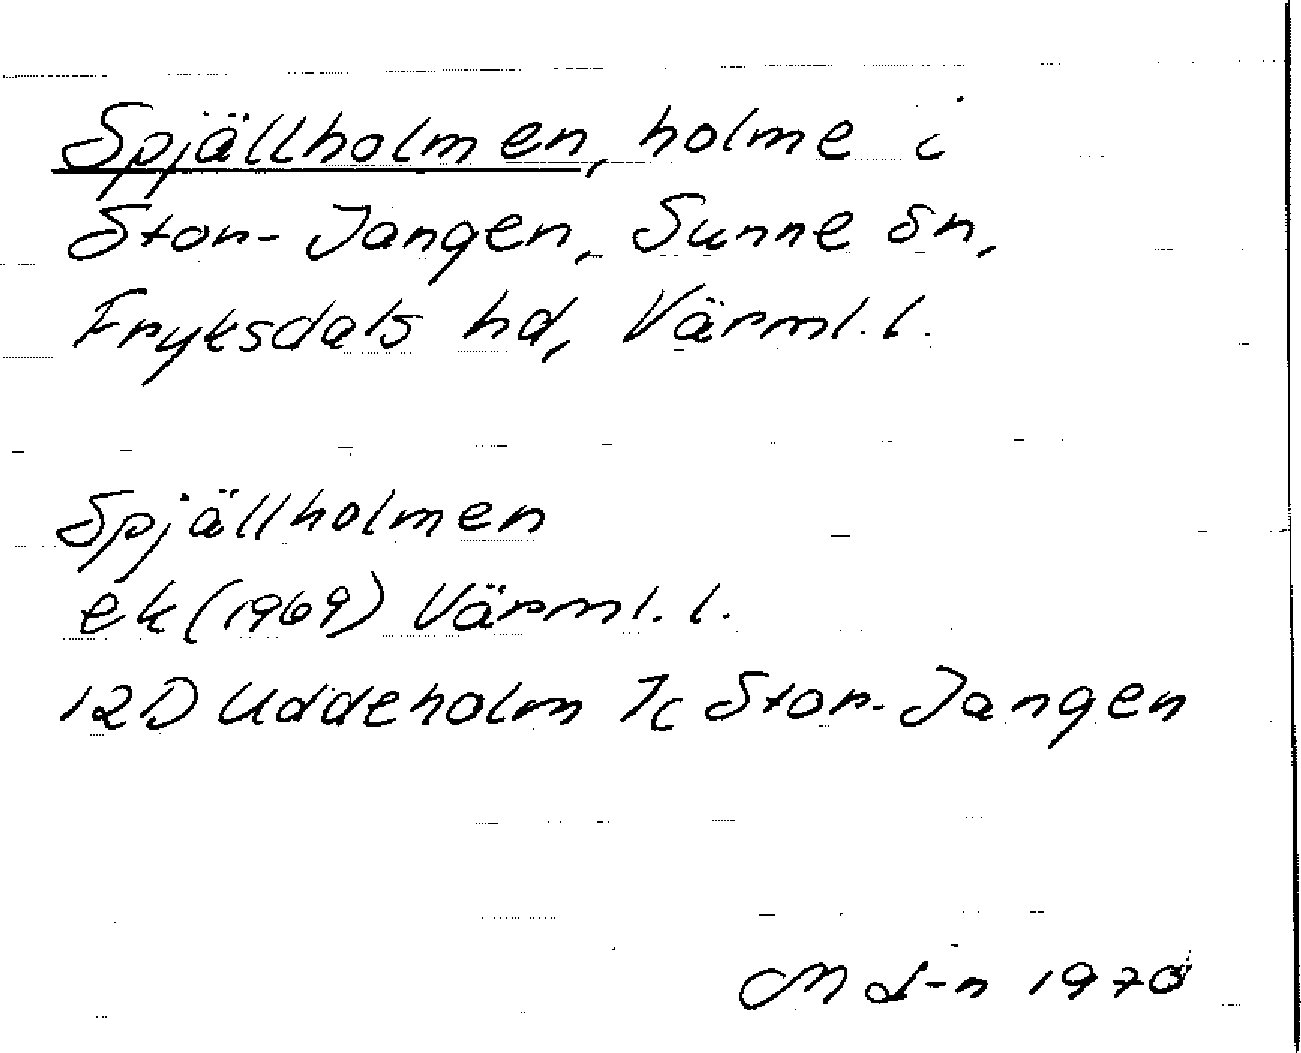 Spjällholmen, holme i
Stor-Jangen, Sunne sn,
Fryksdals hd, Värml. l.
Spjällholmen
ek (1969) Värml. l.
12D Uddeholm 7c Stor-Jangen
1970